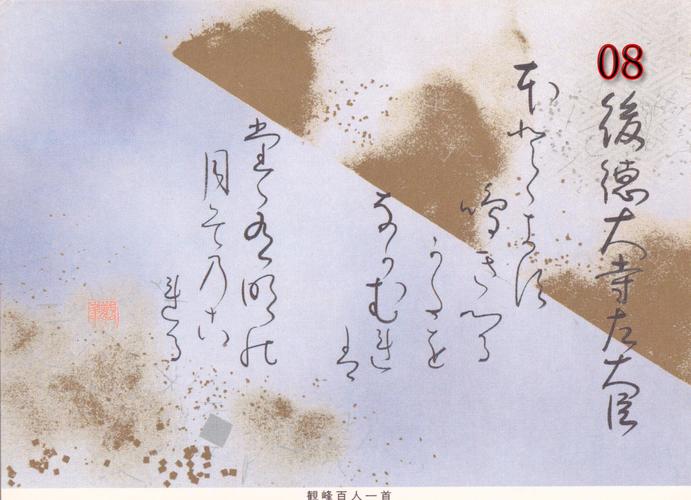 08
後徳大寺左大臣
ほとゝきす
鳴きつる
かたを
なかむれ
は
たゝ有明の
月そのこ
れる
観峰百人一首